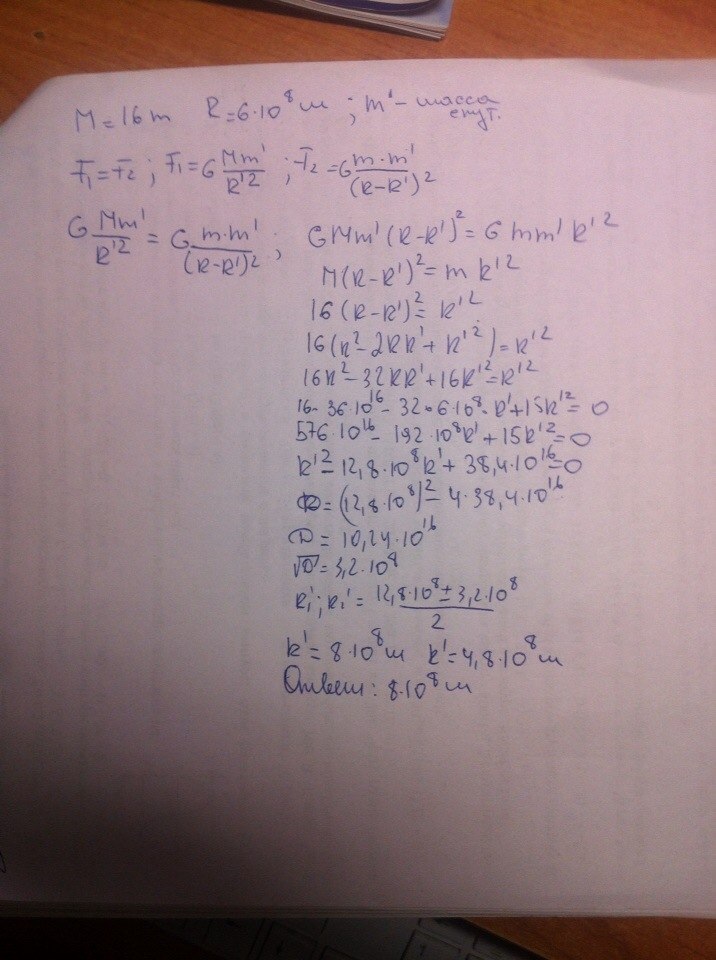 M = 16m R = 6·10⁸ м ; m' - масса спут.
F₁ = F₂ ; F₁ = G Mm'/R'² ; F₂ = G m·m'/(R-R')²
G Mm'/R'² = G m·m'/(R-R')² ; GMm'(R-R')² = Gmm'R'²
M(R-R')² = mR'²
16(R-R')² = R'²
16(R² - 2RR' + R'²) = R'²
16R² - 32RR' + 16R'² = R'²
16·36·10¹⁶ - 32·6·10⁸·R' + 15R'² = 0
576·10¹⁶ - 192·10⁸R' + 15R'² = 0
R'² - 12,8·10⁸R' + 38,4·10¹⁶ = 0
D = (12,8·10⁸)² - 4·38,4·10¹⁶
D = 10,24·10¹⁶
√D = 3,2·10⁸
R₁'; R₂' = (12,8·10⁸ ± 3,2·10⁸)/2
R' = 8·10⁸ м R' = 4,8·10⁸ м
Ответ: 8·10⁸ м